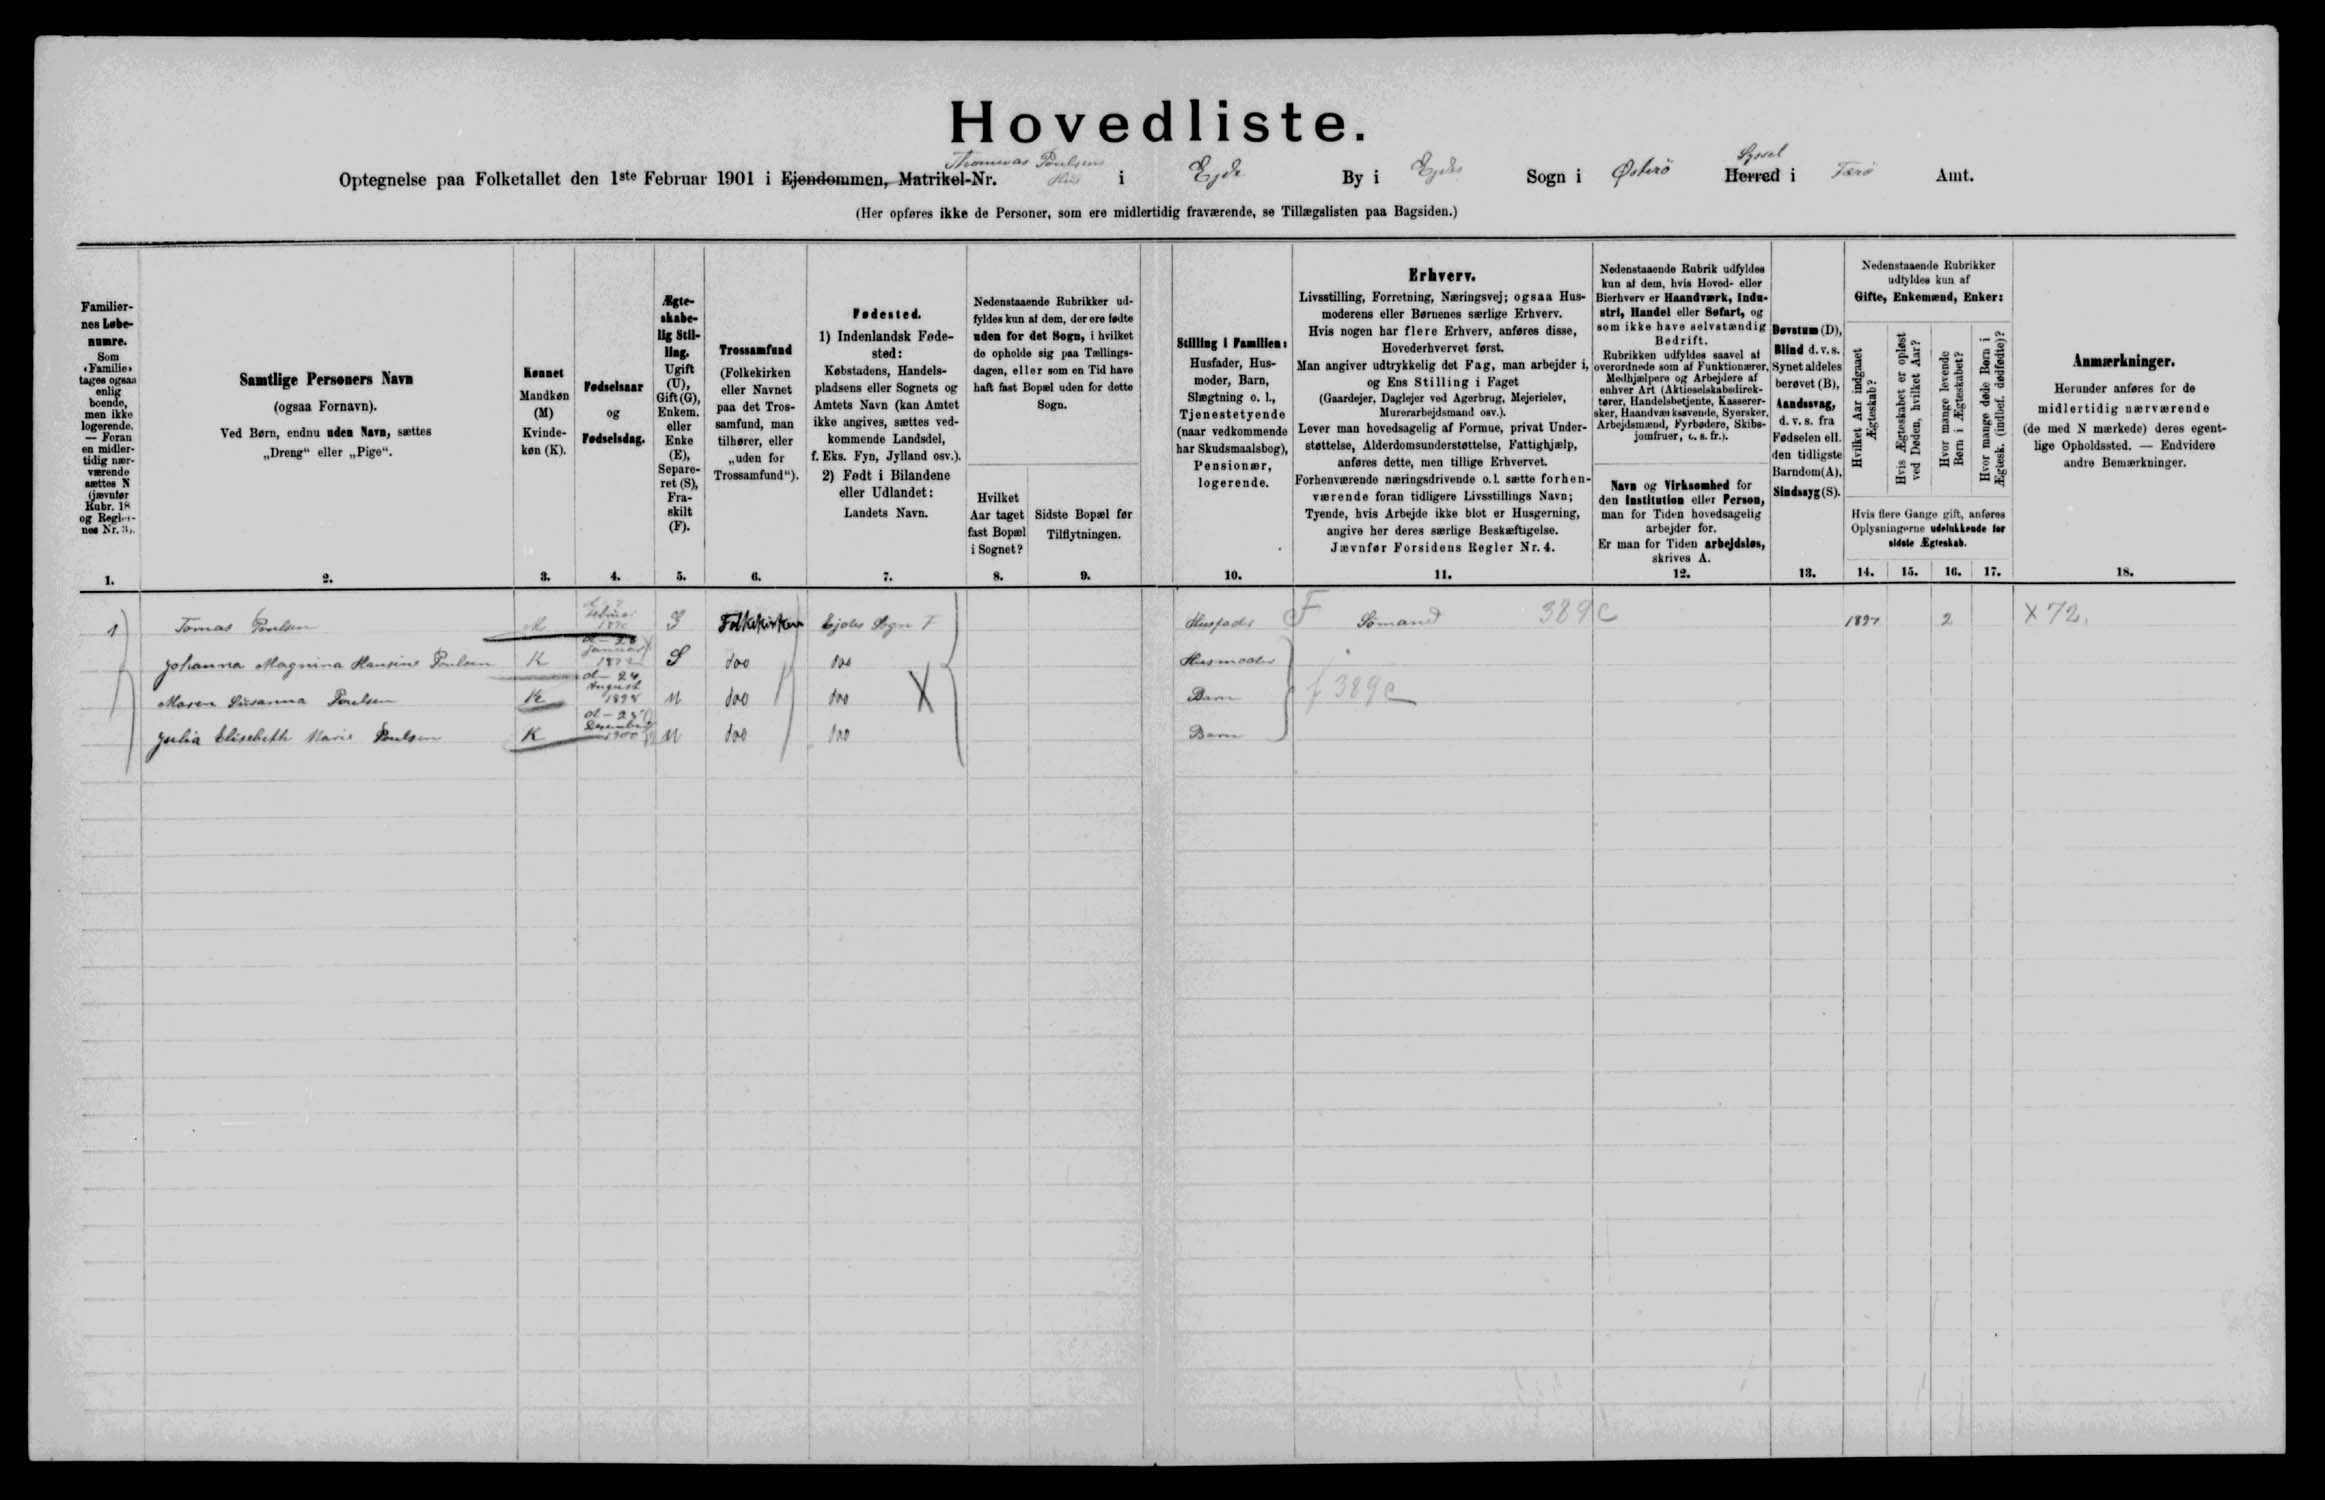 Hovedliste.
Optegnelse paa Folketallet den 1ste Februar 1901 i Ejendommen, Matrikel-Nr. Thommas Poulsens Hus i Ejde By i Ejdes Sogn i Østerø Herred Syssel i Færø Amt.
(Her opføres ikke de Personer, som ere midlertidig fraværende, se Tillægslisten paa Bagsiden.)
Familiernes Løbenumre.
Som
«Familie»
tages ogsaa
enlig
boende,
men ikke
logerende.
— Foran
en midler-
tidig nær-
værende
sættes N
(jævnfør
Rubr. 18
og Regler-
nes Nr. 3).
1.
Samtlige Personers Navn
(ogsaa Fornavn).
Ved Børn, endnu uden Navn, sættes
„Dreng“ eller „Pige“.
2.
Kønnet
Mandkøn
(M)
Kvinde-
køn (K).
3.
Fødselsaar
og
Fødselsdag.
4.
Ægte-
skabe-
lig Stil-
ling.
Ugift
(U),
Gift (G),
Enkem.
eller
Enke
(E),
Separe-
ret (S),
Fra-
skilt
(F).
5.
Trossamfund
(Folkekirken
eller Navnet
paa det Tros-
samfund, man
tilhører, eller
„uden for
Trossamfund“).
6.
Fødested.
1) Indenlandsk Føde-
sted:
Købstadens, Handels-
pladsens eller Sognets og
Amtets Navn (kan Amtet
ikke angives, sættes ved-
kommende Landsdel,
f. Eks. Fyn, Jylland osv.).
2) Født i Bilandene
eller Udlandet:
Landets Navn.
7.
Nedenstaaende Rubrikker ud-
fyldes kun af dem, der ere fødte
uden for det Sogn, i hvilket
de opholde sig paa Tællings-
dagen, eller som en Tid have
haft fast Bopæl uden for dette
Sogn.
Hvilket
Aar taget
fast Bopæl
i Sognet?
8.
Sidste Bopæl før
Tilflytningen.
9.
Stilling i Familien:
Husfader, Hus-
moder, Barn,
Slægtning o. l.,
Tjenestetyende
(naar vedkommende
har Skudsmaalsbog),
Pensionær,
logerende.
10.
Erhverv.
Livsstilling, Forretning, Næringsvej; ogsaa Hus-
moderens eller Børnenes særlige Erhverv.
Hvis nogen har flere Erhverv, anføres disse,
Hovederhvervet først.
Man angiver udtrykkelig det Fag, man arbejder i,
og Ens Stilling i Faget
(Gaardejer, Daglejer ved Agerbrug, Mejerielev,
Murerarbejdsmand osv.).
Lever man hovedsagelig af Formue, privat Under-
støttelse, Alderdomsunderstøttelse, Fattighjælp,
anføres dette, men tillige Erhvervet.
Forhenværende næringsdrivende o.l. sætte forhen-
værende foran tidligere Livsstillings Navn;
Tyende, hvis Arbejde ikke blot er Husgerning,
angive her deres særlige Beskæftigelse.
Jævnfør Forsidens Regler Nr. 4.
11.
Nedenstaaende Rubrik udfyldes
kun af dem, hvis Hoved- eller
Bierhverv er Haandværk, Indu-
stri, Handel eller Søfart, og
som ikke have selvstændig
Bedrift.
Rubrikken udfyldes saavel af
overordnede som af Funktionærer,
Medhjælpere og Arbejdere af
enhver Art (Aktieselskabsdirek-
tører, Handelsbetjente, Kasserer-
sker, Haandværksøvende, Syersker,
Arbejdsmænd, Fyrbødere, Skibs-
jomfruer, o. s. fr.).
Navn og Virksomhed for
den Institution eller Person,
man for Tiden hovedsagelig
arbejder for.
Er man for Tiden arbejdsløs,
skrives A.
12.
Døvstum (D),
Blind d. v. s.
Synet aldeles
berøvet (B),
Aandssvag,
d. v. s. fra
Fødselen ell.
den tidligste
Barndom (A),
Sindssyg (S).
13.
Nedenstaaende Rubrikker
udfyldes kun af
Gifte, Enkemænd, Enker:
Hvilket Aar indgaaet
Ægteskab?
Hvis Ægteskabet er opløst
ved Døden, hvilket Aar?
Hvor mange levende
Børn i Ægteskabet?
Hvor mange døde Børn i
Ægtesk. (indbef. dødfødte)?
Hvis flere Gange gift, anføres
Oplysningerne udelukkende for
sidste Ægteskab.
14. 15. 16. 17.
Anmærkninger.
Herunder anføres for de
midlertidig nærværende
(de med N mærkede) deres egent-
lige Opholdssted. — Endvidere
andre Bemærkninger.
18.
1 Tomas Poulsen M G Folkekirken Ejdes Sogn F Husfader F Sömand 389c 2 X 72.
Johanna Magnina Hansine Poulsen K d - 28 Januar doo doo Husmoder
Maren Susanna Poulsen K d - 24 August 1898 U doo doo Barn f 389c
Julia Elisebeth Marie Poulsen K Desember 1900 U doo doo Barn